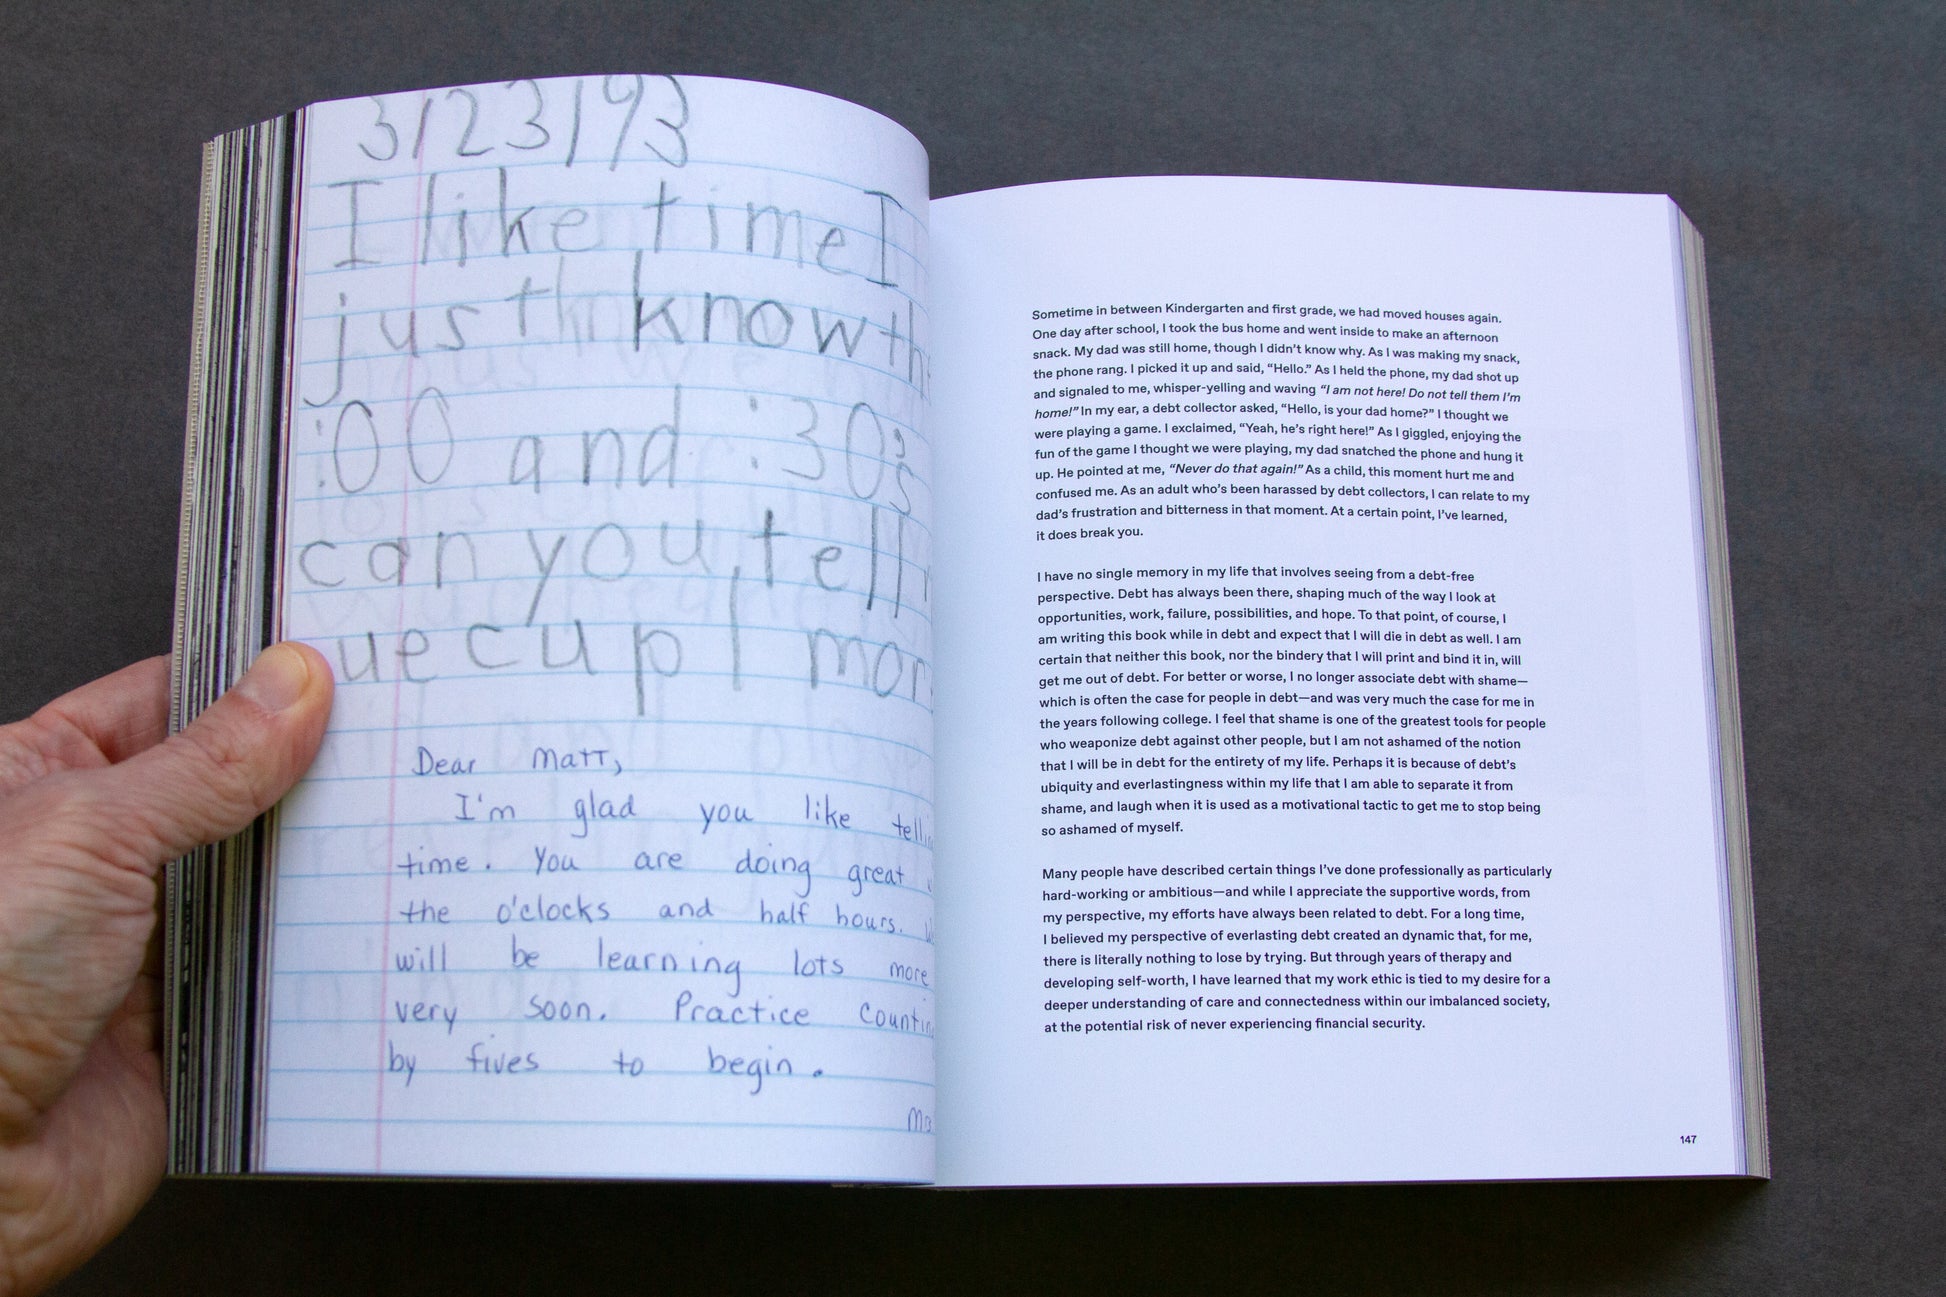 3/23/93
I like time I
just know the
:00 and :30's
can you tell
ue cup l mor
Dear Matt,
I'm glad you like tellin
time. You are doing great
the o'clocks and half hours.
will be learning lots more
very soon. Practice countin
by fives to begin.
Sometime in between Kindergarten and first grade, we had moved houses again.
One day after school, I took the bus home and went inside to make an afternoon
snack. My dad was still home, though I didn't know why. As I was making my snack,
the phone rang. I picked it up and said, “Hello.” As I held the phone, my dad shot up
and signaled to me, whisper-yelling and waving “I am not here! Do not tell them I'm
home!” In my ear, a debt collector asked, “Hello, is your dad home?” I thought we
were playing a game. I exclaimed, “Yeah, he's right here!” As I giggled, enjoying the
fun of the game I thought we were playing, my dad snatched the phone and hung it
up. He pointed at me, “Never do that again!” As a child, this moment hurt me and
confused me. As an adult who's been harassed by debt collectors, I can relate to my
dad's frustration and bitterness in that moment. At a certain point, I've learned,
it does break you.
I have no single memory in my life that involves seeing from a debt-free
perspective. Debt has always been there, shaping much of the way I look at
opportunities, work, failure, possibilities, and hope. To that point, of course, I
am writing this book while in debt and expect that I will die in debt as well. I am
certain that neither this book, nor the bindery that I will print and bind it in, will
get me out of debt. For better or worse, I no longer associate debt with shame—
which is often the case for people in debt—and was very much the case for me in
the years following college. I feel that shame is one of the greatest tools for people
who weaponize debt against other people, but I am not ashamed of the notion
that I will be in debt for the entirety of my life. Perhaps it is because of debt's
ubiquity and everlastingness within my life that I am able to separate it from
shame, and laugh when it is used as a motivational tactic to get me to stop being
so ashamed of myself.
Many people have described certain things I've done professionally as particularly
hard-working or ambitious—and while I appreciate the supportive words, from
my perspective, my efforts have always been related to debt. For a long time,
I believed my perspective of everlasting debt created an dynamic that, for me,
there is literally nothing to lose by trying. But through years of therapy and
developing self-worth, I have learned that my work ethic is tied to my desire for a
deeper understanding of care and connectedness within our imbalanced society,
at the potential risk of never experiencing financial security.
147